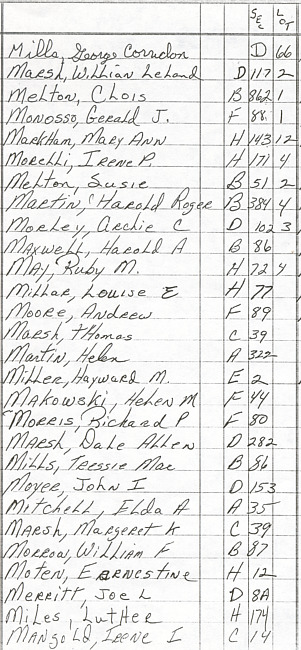 SEC LOT
Mills, George Corridon D 66
Marsh, Willian Leland D 117 2
Melton, Clois B 862 1
Monosso, Gerald J. F 88 1
Markham, Mary Ann H 143 12
Morelli, Irene P. H 171 4
Melton, Susie B 51 2
Martin, Harold Roger B 384 4
Morley, Archie C D 102 3
Maxwell, Harold A B 86
May, Ruby M. H 72 4
Millar, Louise E H 77
Moore, Andrew F 89
Marsh, Thomas C 39
Martin, Helen A 322
Miller, Hayward M. E 2
Makowski, Helen M F 44
Morris, Richard P F 80
Marsh, Dale Allen D 282
Mills, Tressie Mae B 86
Moyer, John I D 153
Mitchell, Elda A A 35
Marsh, Margeret K C 39
Morrow, William F B 87
Moten, Earnestine H 12
Merritt, Joe L D 8A
Miles, Luther H 174
Mangold, Irene I C 14